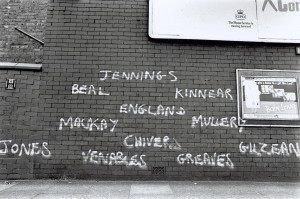 JENNINGS
BEAL KINNEAR
ENGLAND
MACKAY MULLERY
CHIVERS
JONES VENABLES GREAVES GILZEAN